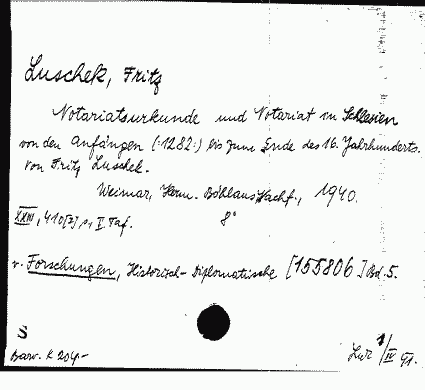 Luschek, Fritz
Notariatsurkunde und Notariat in Schlesien
von den Anfängen (:1282:) bis zum Ende des 16. Jahrhunderts.
Von Fritz Luschek.
Weimar, Herm. Böhlaus Nachf., 1940.
XXIII, 410[2] s, I Taf. 8°
v. Forschungen, Historisch-Diplomatische [155806] Bd. 5.
S
K 204.-
1/IV 41.